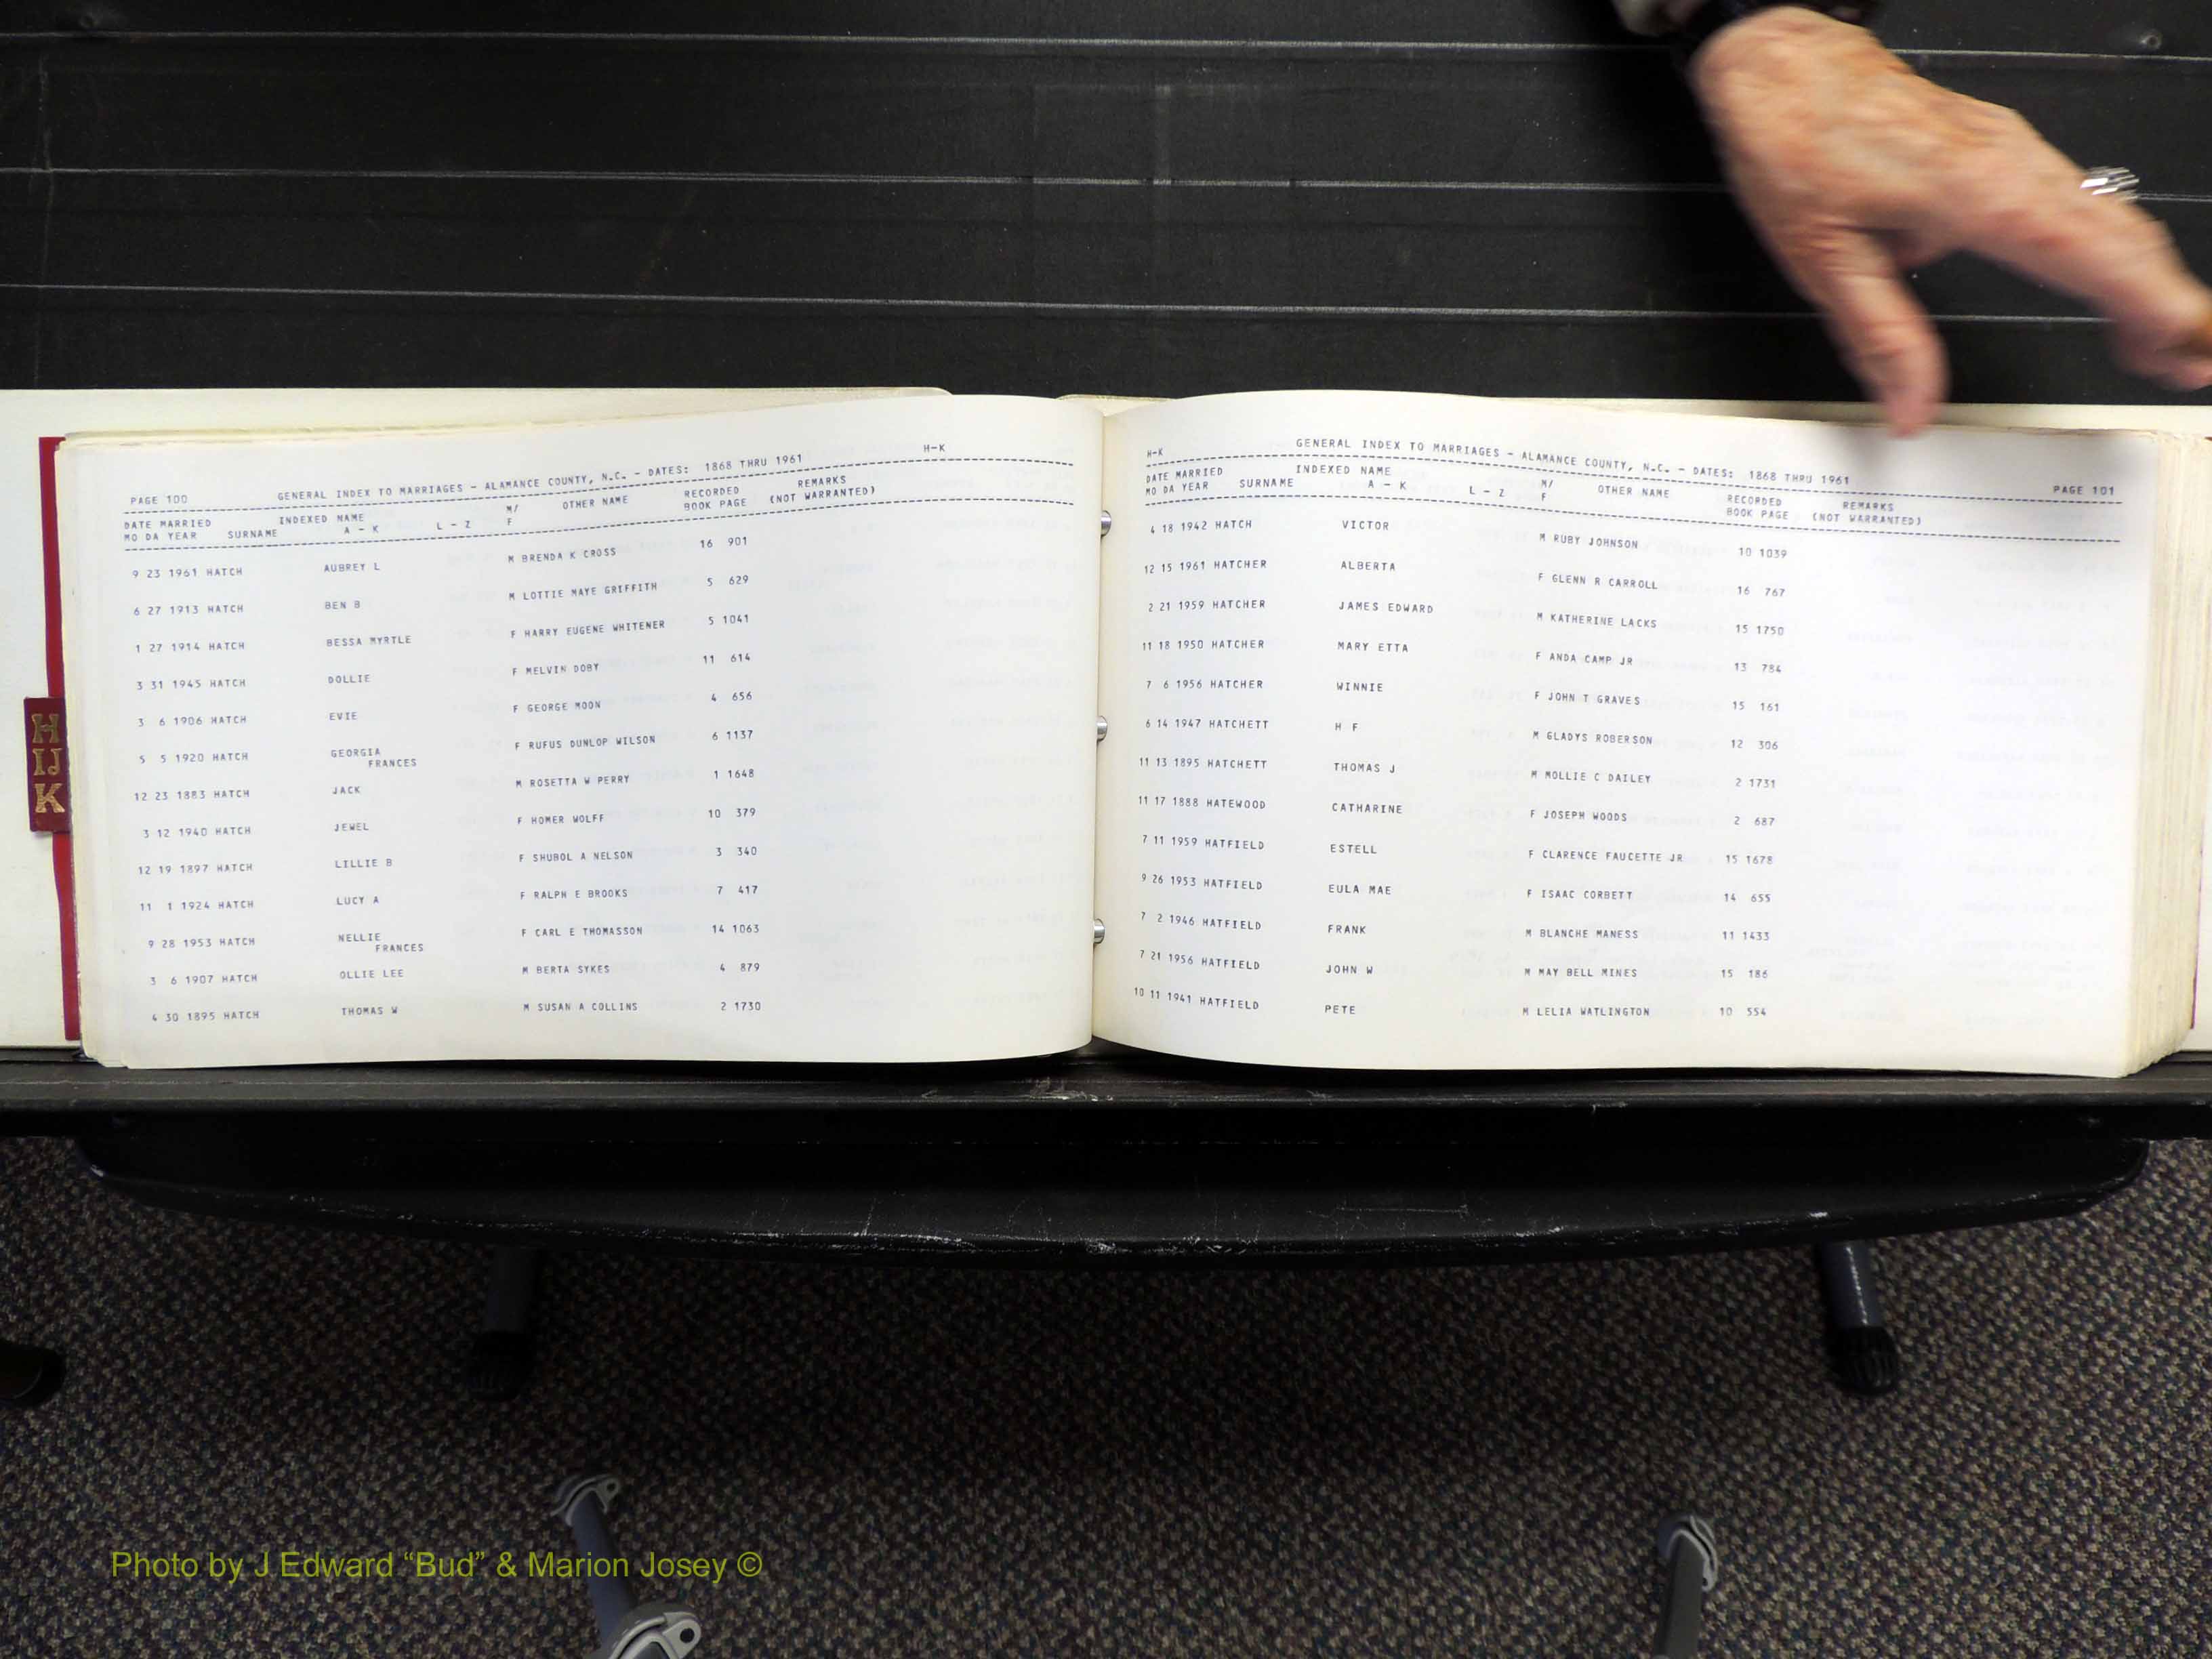 H
IJ
K
H-K
PAGE 100 GENERAL INDEX TO MARRIAGES - ALAMANCE COUNTY, N.C. - DATES: 1868 THRU 1961
DATE MARRIED INDEXED NAME M/ OTHER NAME RECORDED REMARKS
MO DA YEAR SURNAME A - K L - Z F BOOK PAGE (NOT WARRANTED)
9 23 1961 HATCH AUBREY L M BRENDA K CROSS 16 901
6 27 1913 HATCH BEN B M LOTTIE MAYE GRIFFITH 5 629
1 27 1914 HATCH BESSA MYRTLE F HARRY EUGENE WHITENER 5 1041
3 31 1945 HATCH DOLLIE F MELVIN DOBY 11 614
3 6 1906 HATCH EVIE F GEORGE MOON 4 656
5 5 1920 HATCH GEORGIA F RUFUS DUNLOP WILSON 6 1137
FRANCES
12 23 1883 HATCH JACK M ROSETTA W PERRY 1 1648
3 12 1940 HATCH JEWEL F HOMER WOLFF 10 379
12 19 1897 HATCH LILLIE B F SHUBOL A NELSON 3 340
11 1 1924 HATCH LUCY A F RALPH E BROOKS 7 417
9 28 1953 HATCH NELLIE F CARL E THOMASSON 14 1063
FRANCES
3 6 1907 HATCH OLLIE LEE M BERTA SYKES 4 879
4 30 1895 HATCH THOMAS W M SUSAN A COLLINS 2 1730
H-K GENERAL INDEX TO MARRIAGES - ALAMANCE COUNTY, N.C. - DATES: 1868 THRU 1961 PAGE 101
DATE MARRIED INDEXED NAME M/ OTHER NAME RECORDED REMARKS
MO DA YEAR SURNAME A - K L - Z F BOOK PAGE (NOT WARRANTED)
4 18 1942 HATCH VICTOR M RUBY JOHNSON 10 1039
12 15 1961 HATCHER ALBERTA F GLENN R CARROLL 16 767
2 21 1959 HATCHER JAMES EDWARD M KATHERINE LACKS 15 1750
11 18 1950 HATCHER MARY ETTA F ANDA CAMP JR 13 784
7 6 1956 HATCHER WINNIE F JOHN T GRAVES 15 161
6 14 1947 HATCHETT H F M GLADYS ROBERSON 12 306
11 13 1895 HATCHETT THOMAS J M MOLLIE C DAILEY 2 1731
11 17 1888 HATEWOOD CATHARINE F JOSEPH WOODS 2 687
7 11 1959 HATFIELD ESTELL F CLARENCE FAUCETTE JR 15 1678
9 26 1953 HATFIELD EULA MAE F ISAAC CORBETT 14 655
7 2 1946 HATFIELD FRANK M BLANCHE MANESS 11 1433
7 21 1956 HATFIELD JOHN W M MAY BELL MINES 15 186
10 11 1941 HATFIELD PETE M LELIA WATLINGTON 10 554
Photo by J Edward “Bud” & Marion Josey ©